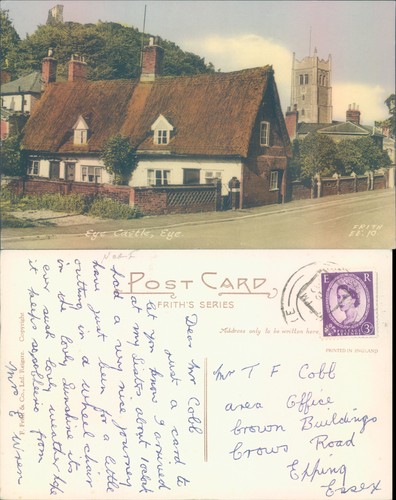 Eye Castle, Eye.
FRITH
EE. 10
POST CARD
FRITH'S SERIES
Address only to be written here
PRINTED IN ENGLAND
E R
3D
F. Frith & Co., Ltd. Reigate. Copyright
Dear Mr Cobb
Just a card to
let you know I arrived
at my Sisters about 1 oclock
had a very nice journey
have just been for a little
outing in a wheel chair
in the lovely Sunshine its
ever such lovely weather, hope
it keeps
from
Mrs E Wren
Mr T F Cobb
area Office
Crown Buildings
Crows Road
Epping
Essex